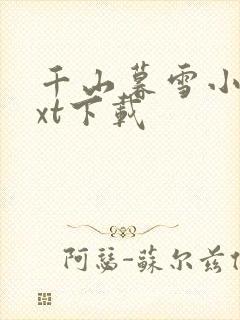 千山暮雪小
xt下載
阿瑟-蘇尔兹